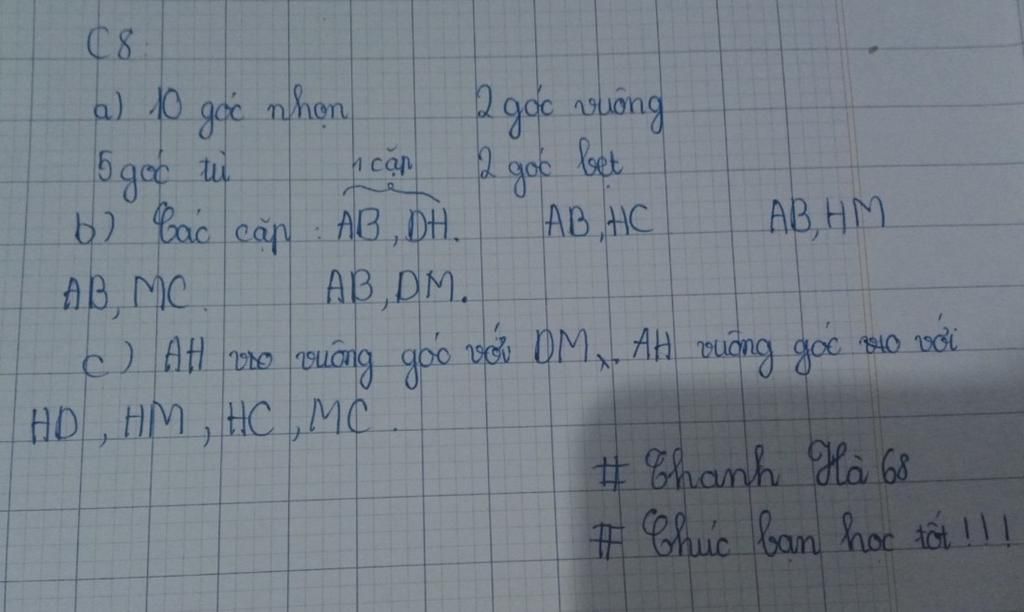 C8.
a) 10 góc nhọn 2 góc vuông
5 góc tù 1 cặp 2 góc bẹt
b) Các cặp : AB, DH. AB, HC AB, HM
AB, MC. AB, DM.
c) AH vuông góc với DM, AH vuông góc với
HD, HM, HC, MC.
# Thanh Hà 68
# Chúc bạn học tốt!!!